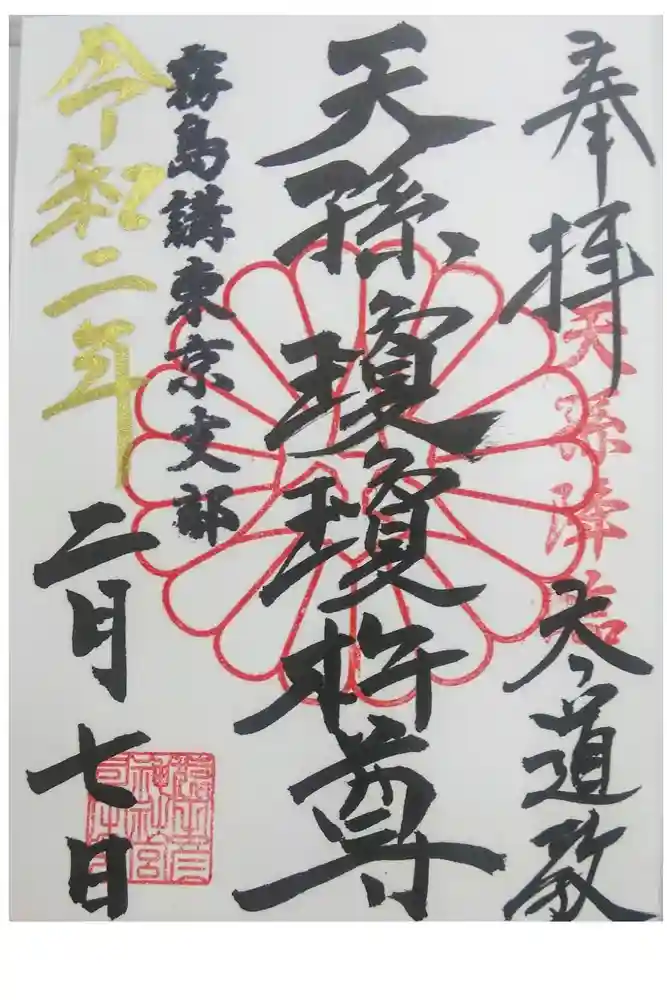 奉拝
天孫降臨
天ノ道教
天孫瓊瓊杵尊
霧島講東京支部
令和二年
二月七日